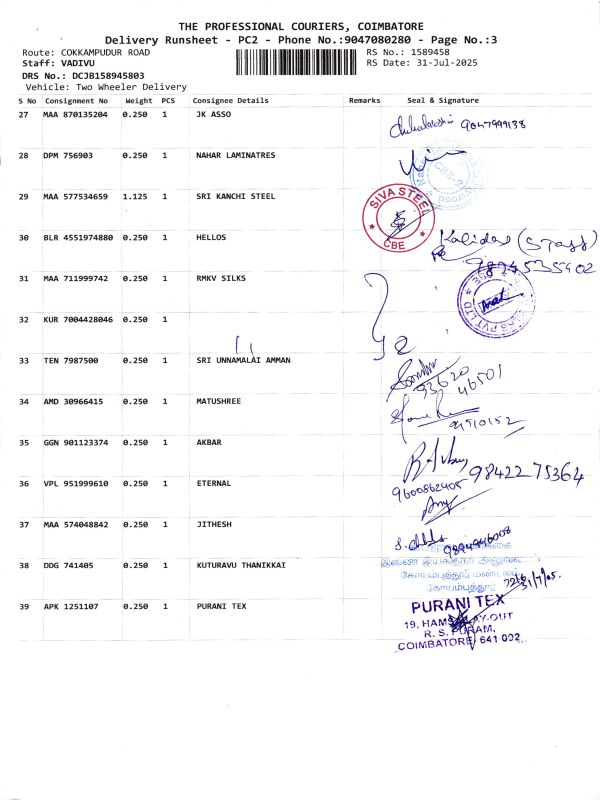 THE PROFESSIONAL COURIERS, COIMBATORE
Delivery Runsheet - PC2 - Phone No.:9047080280 - Page No.:3
Route: COKKAMPUDUR ROAD RS No.: 1589458
Staff: VADIVU RS Date: 31-Jul-2025
DRS No.: DCJB158945803
Vehicle: Two Wheeler Delivery
S No Consignment No Weight PCS Consignee Details Remarks Seal & Signature
27 MAA 870135204 0.250 1 JK ASSO
9047999138
28 DPM 756903 0.250 1 NAHAR LAMINATRES
29 MAA 577534659 1.125 1 SRI KANCHI STEEL
SIVA STEEL
CBE
30 BLR 4551974880 0.250 1 HELLOS
Kalidas (Staff)
9894535402
31 MAA 711999742 0.250 1 RMKV SILKS
PVT LTD
32 KUR 7004428046 0.250 1
33 TEN 7987500 0.250 1 SRI UNNAMALAI AMMAN
93620
46501
34 AMD 30966415 0.250 1 MATUSHREE
35 GGN 901123374 0.250 1 AKBAR
98422 75364
36 VPL 951999610 0.250 1 ETERNAL
9600862405
37 MAA 574048842 0.250 1 JITHESH
9894946008
38 DDG 741405 0.250 1 KUTURAVU THANIKKAI
கோயம்புத்தூர் மண்டலம்
கோயம்புத்தூர்
39 APK 1251107 0.250 1 PURANI TEX
PURANI TEX
R. S. PURAM,
COIMBATORE 641 002